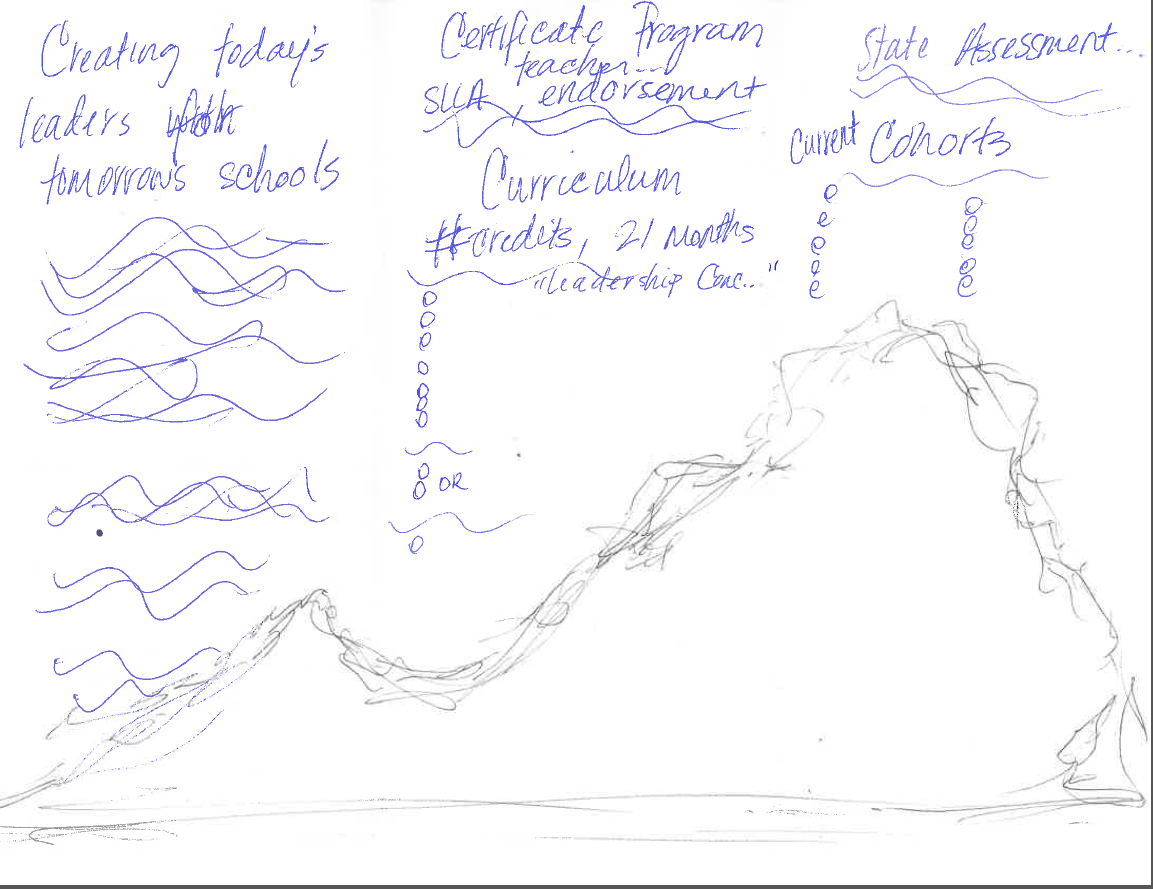 Creating today's
leaders
tomorrow's schools
Certificate Program
teacher...
SLLA, endorsement
Curriculum
# credits, 21 Months
"Leadership Conc.."
OR
State Assessment...
Current Cohorts